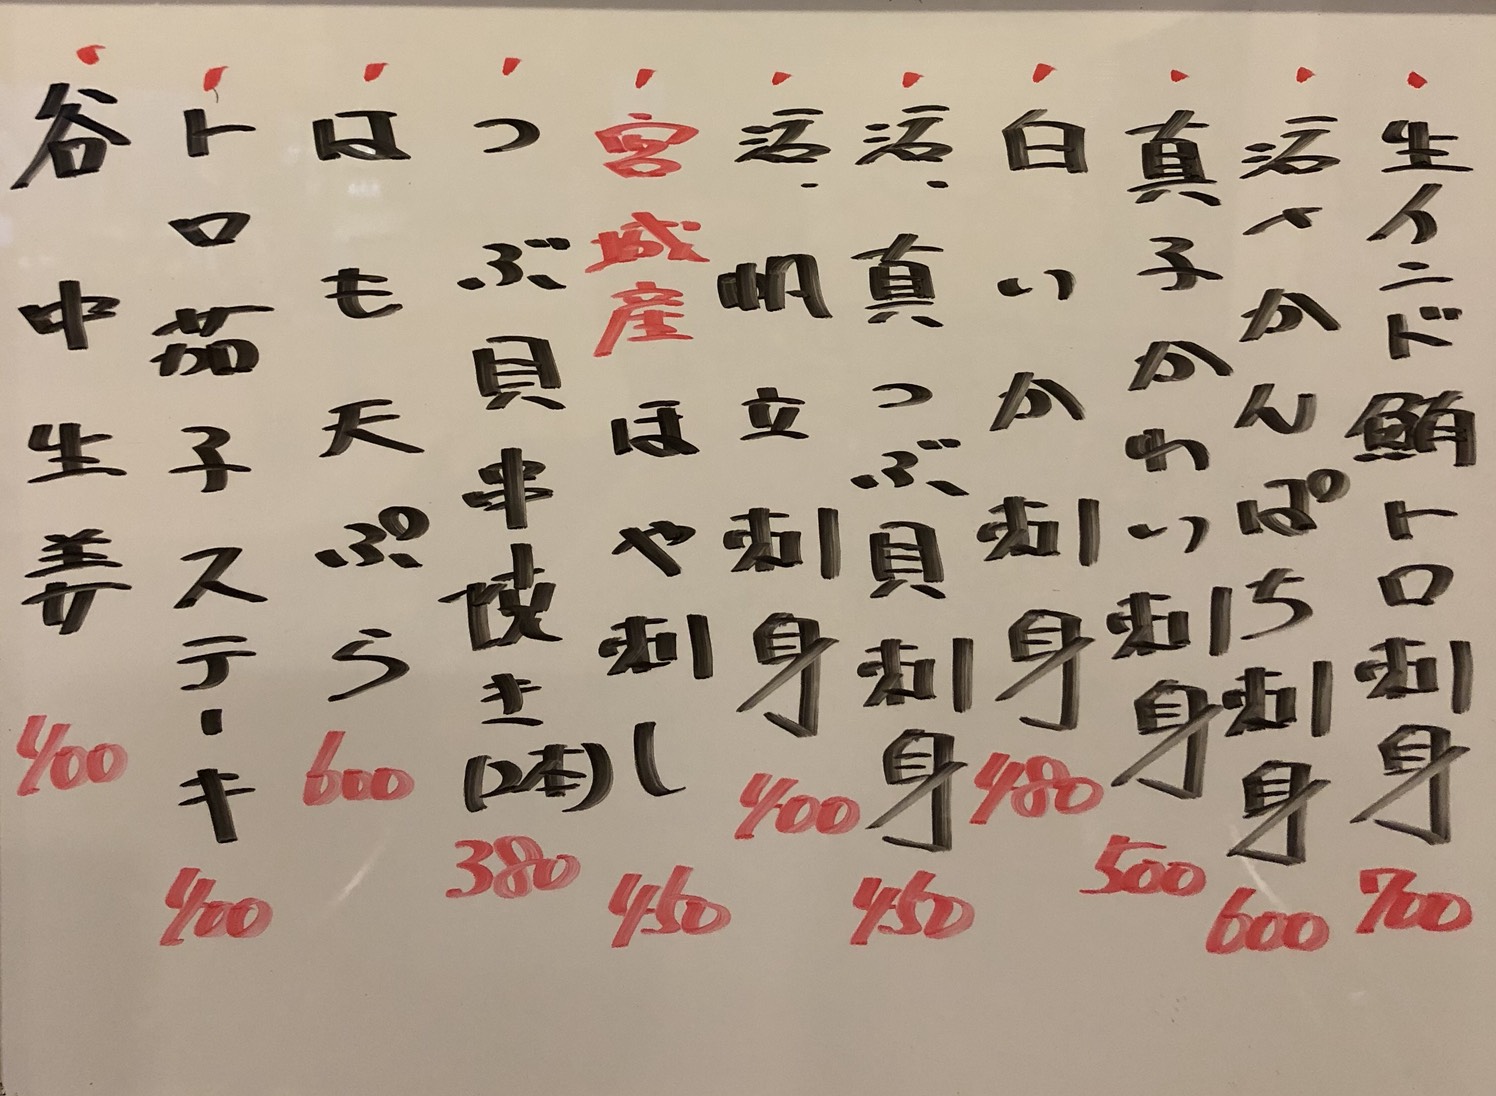 生インド鮪トロ刺身 700
活〆かんぱち刺身 600
真子かれい刺身 500
白いか刺身 480
活・真つぶ貝刺身 450
活・帆立刺身 400
宮城産ほや刺し 450
つぶ貝串焼き(2本) 380
はも天ぷら 600
トロ茄子ステーキ 400
谷中生姜 400